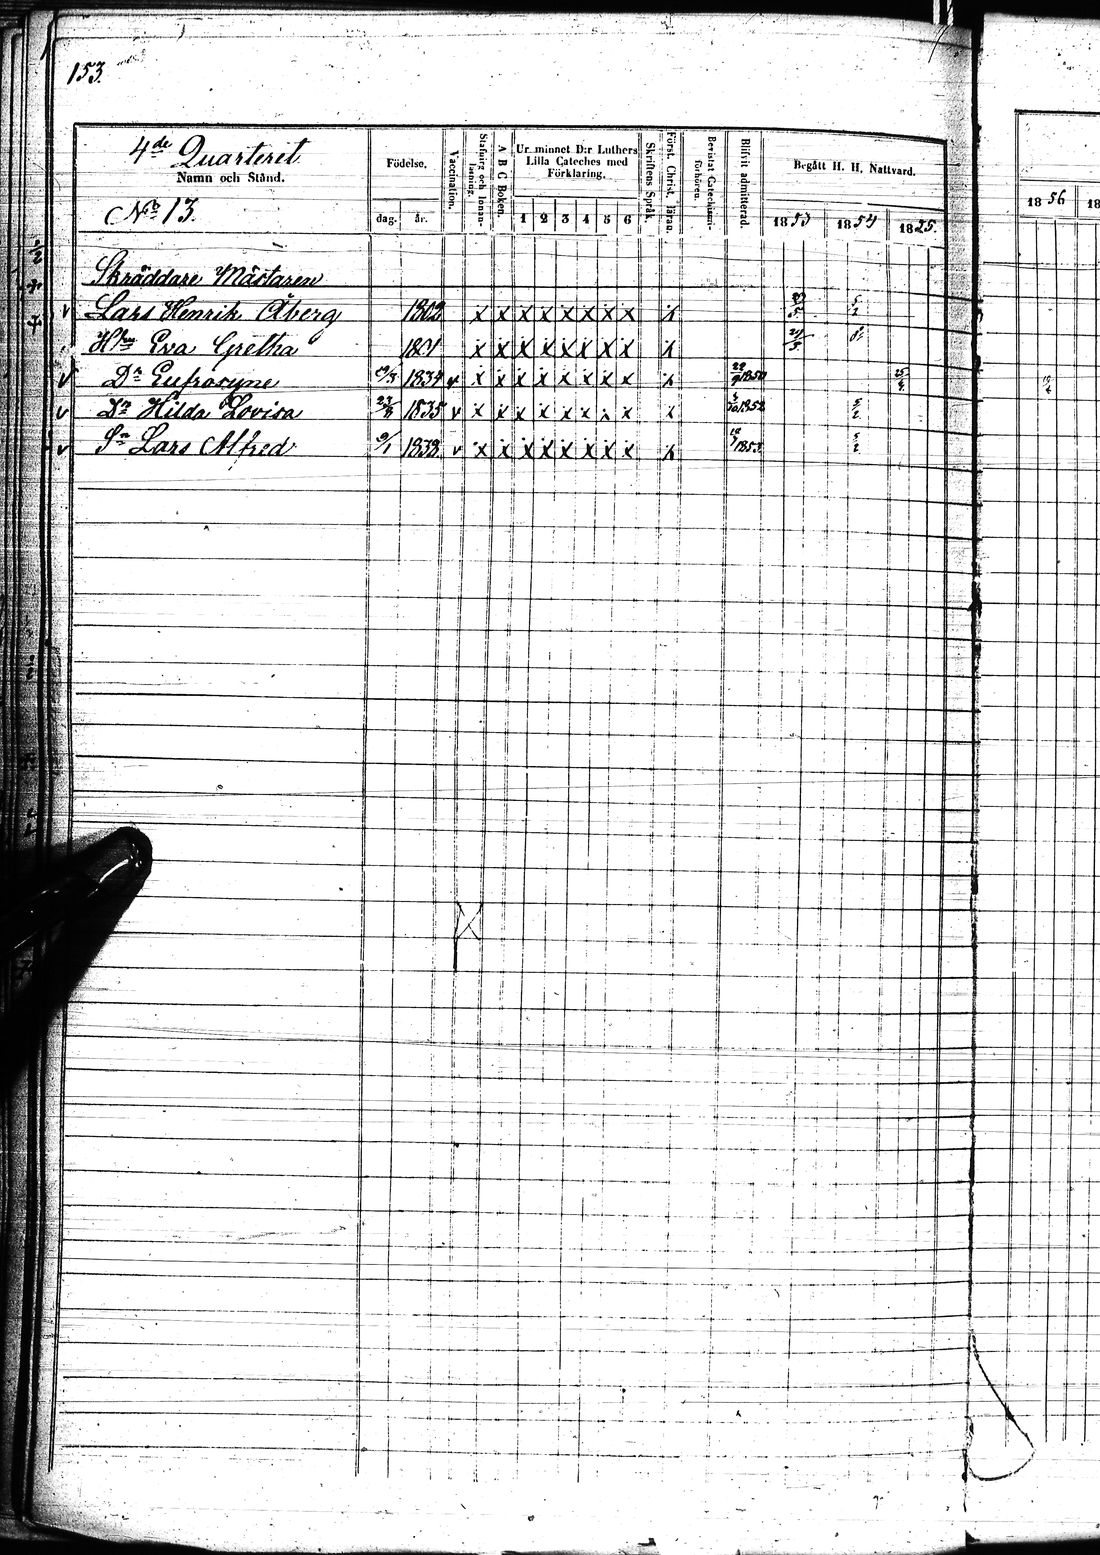 153.
4de Quarteret
Namn och Stånd.
No 13.
Födelse.
dag. år.
Vaccination.
Stafning och Innanläsning.
A B C Boken.
Ur minnet D:r Luthers
Lilla Cateches med
Förklaring.
1 2 3 4 5 6
Skriftens Språk.
Först. Christ. läran.
Bevistat Catechismiförhören.
Blifvit admitterad.
Begått H. H. Nattvard.
1853 1854 1825.
1856 18
Skräddare Mästaren
v Lars Henrik Åberg 1802 x x x x x x x x x 5/2
Hn Eva Gretha 1801 x x x x x x x x x 21/5
v Dr Eufrosyne 1834 v x x x x x x x x x 1850
v Dr Hilda Lovisa 23/8 1835 v x x x x x x x x x 1852 5/2
v Sn Lars Alfred 9/1 1838 v x x x x x x x x x 1853. 5/2